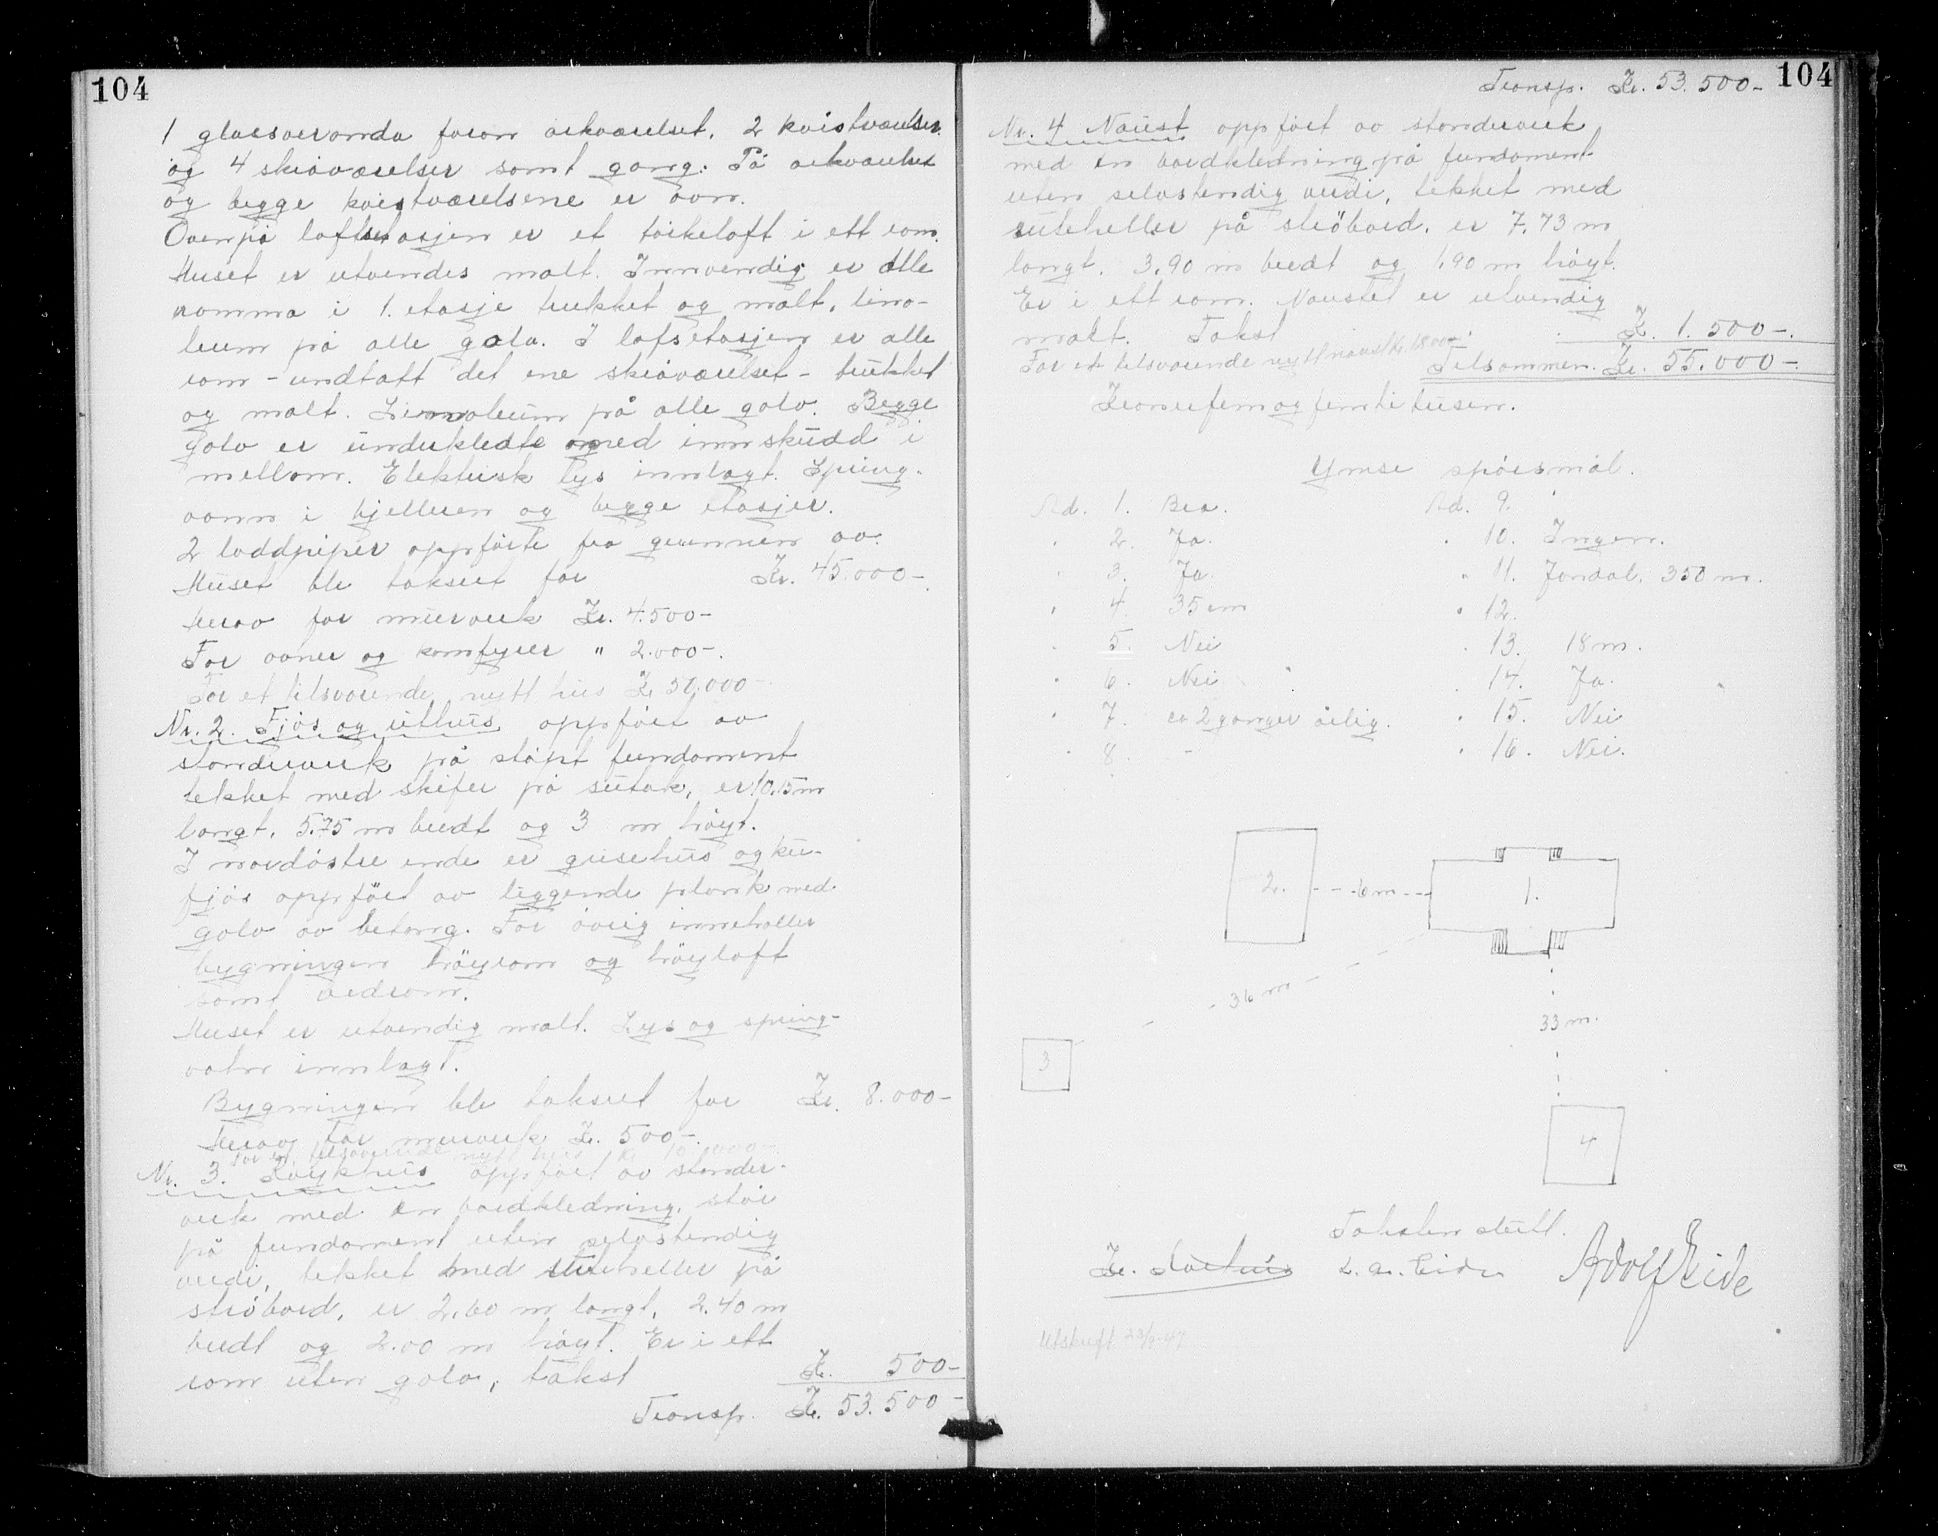 104
1 glassveranda foran arkværelset, 2 kvistværelser
og 4 skråværelser samt gang. På arkværelset
og begge kvistværelsene er ovn.
Ovenpå loftsetasjen er et tørkeloft i ett rom.
Huset er utvendes malt. Innvendig er alle
romma i 1. etasje trukket og malt, lino-
leum på alle golv. I lofsetasjen er alle
rom - undtatt det ene skråværelset - trukket
og malt. Linnoleum på alle golv. Begge
golv er underkledte med innskudd i
mellom. Elektrisk lys innlagt. Spring-
vann i kjelleren og begge etasjer.
2 loddpiper oppførte fra grunnen av.
Huset ble taksert for Kr. 45.000-
Herav for murverk Kr. 4.500-
For ovner og komfyrer " 2.000-.
For et tilsvarende nytt hus Kr 50.000-
Nr. 2. Fjøs og uthus, oppført av
standerverk på støpt fundament
tekket med skifer på sutak, er 10,15 m
langt, 5.75 m bredt og 3 m høyt.
I nordøstre ende er grisehus og ku-
fjøs oppført av liggende plank med
golv av betong. For øvrig inneholder
bygningen høyrom og høyloft
samt vedrom.
Huset er utvendig malt. Lys og spring-
vatn innlagt.
Bygningen ble taksert for Kr. 8.000-
Herav for murverk Kr. 500-.
For et tilsvarende nytt hus Kr 10.000-
Nr. 3. Røykhus oppført av stander-
verk med en bordkledning, står
på fundament uten selvstendig
verdi, tekket med suteheller på
strøbord, er 2,60 m langt, 2.40 m
bredt og 2.00 m høyt. Er i ett
rom uten golv, takst Kr. 500-
Transp. Kr. 53.500-
Transp. Kr. 53.500- 104
Nr. 4 Naust oppført av standerverk
med en bordkledning på fundament
uten selvstendig verdi, tekket med
suteheller på strøbord, er 7,73 m
langt, 3,90 m bredt og 1,90 m høyt.
Er i ett rom. Naustet er utvendig
malt. Takst Kr. 1.500-.
For et tilsvarende nytt naust Kr 1800-
Tilsammen. Kr. 55.000-.
Kroner femogfemti tusen.
Ymse spørsmål.
Ad. 1. Bra. Ad. 9.
" 2. Ja. " 10. Ingen.
" 3. Ja. " 11. Jondal. 350 m.
" 4. 35 cm " 12.
" 5. Nei " 13. 18 m.
" 6. Nei " 14. Ja.
" 7. ca 2 ganger årlig. " 15. Nei
" 8. - " 16. Nei.
2. - - 6 m - - 1.
- 36 m -
33 m.
3
4
Taksten slutt.
L. A. Eide Adolf Eide
Utskrift 23/9-47